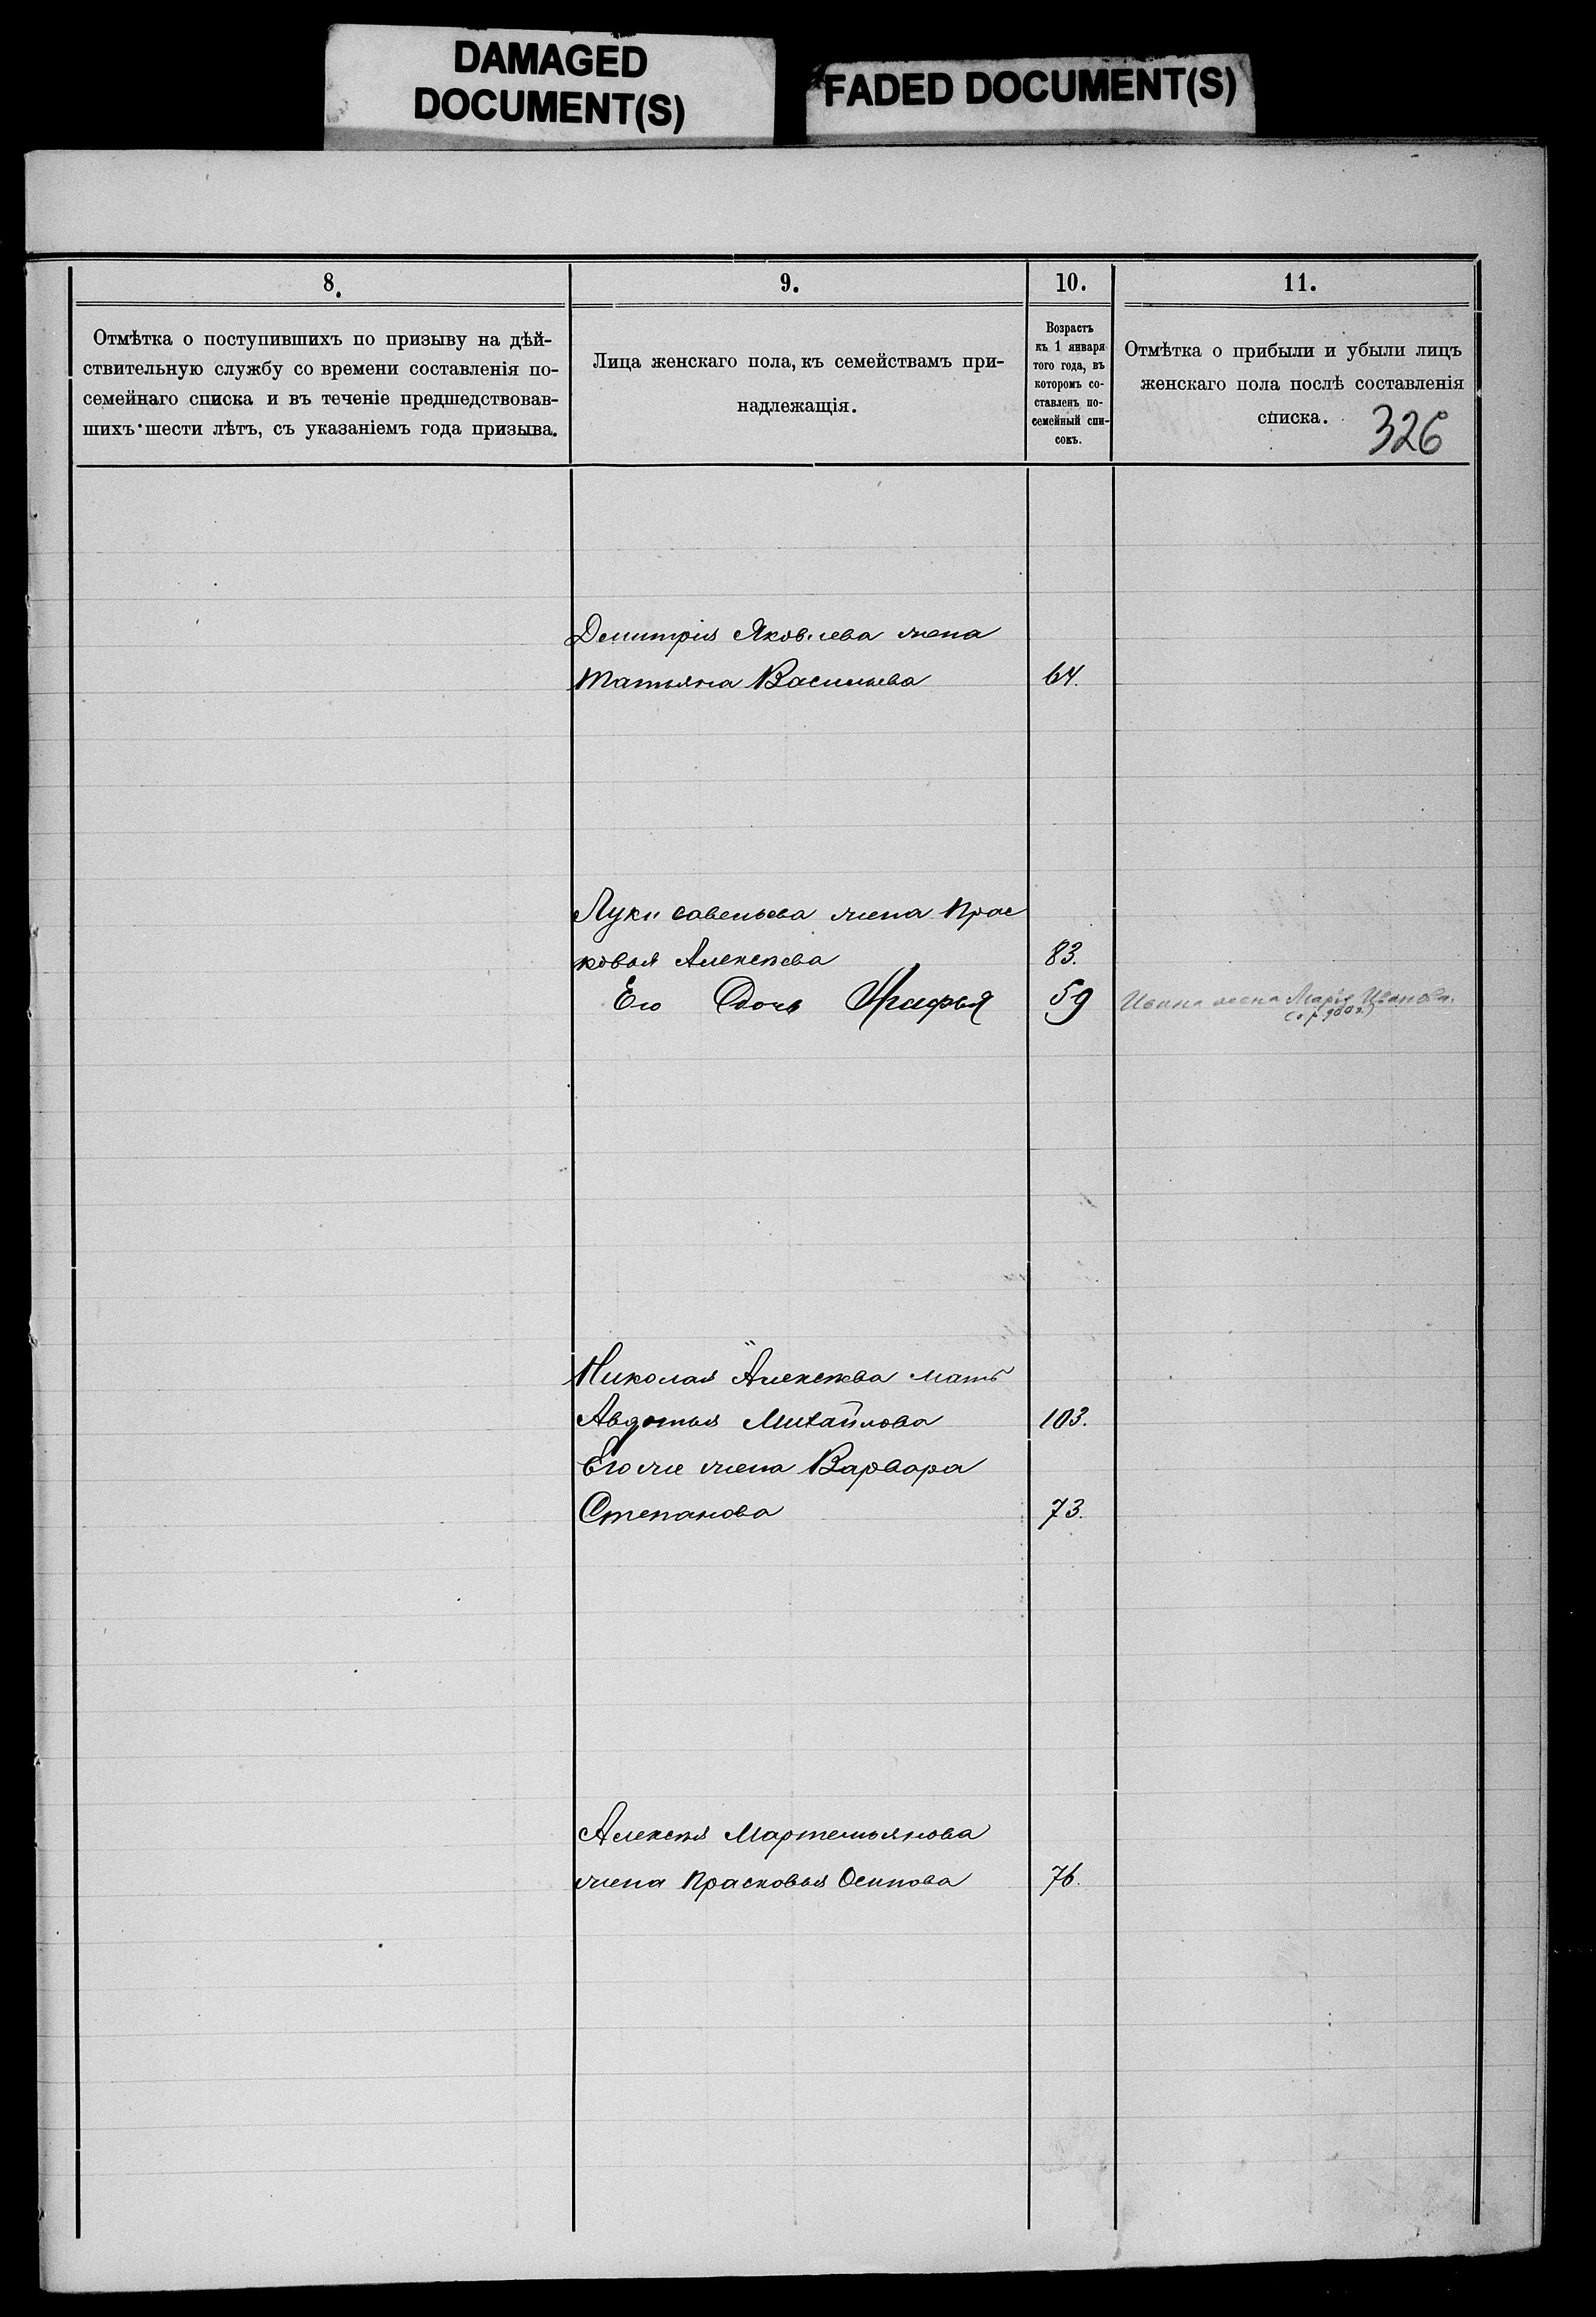 DAMAGED
DOCUMENT(S)
FADED DOCUMENT(S)
8.
Отмѣтка о поступившихъ по призыву на дѣй-
ствительную службу со времени составленія по-
семейнаго списка и въ теченіе предшедствовав-
шихъ шести лѣтъ, съ указаніемъ года призыва.
9.
Лица женскаго пола, къ семействамъ при-
надлежащія.
10.
Возрастъ
къ 1 января
того года, въ
которомъ со-
ставленъ по-
семейный спи-
сокъ.
11.
Отмѣтка о прибыли и убыли лицъ
женскаго пола послѣ составленія
списка.
326
Димитрія Яковлева жена
Татьяна Васильева 64.
Луки Савельева жена Прас
ковья Алексѣева 83.
Его Дочь Агафья 59 жена Марія Иванова.
Николая Алексѣева мать
Авдотья Михайлова 103.
Его же жена Варвара
Степанова 73.
Алексѣя Мартемьянова
жена Прасковья Осипова 76.